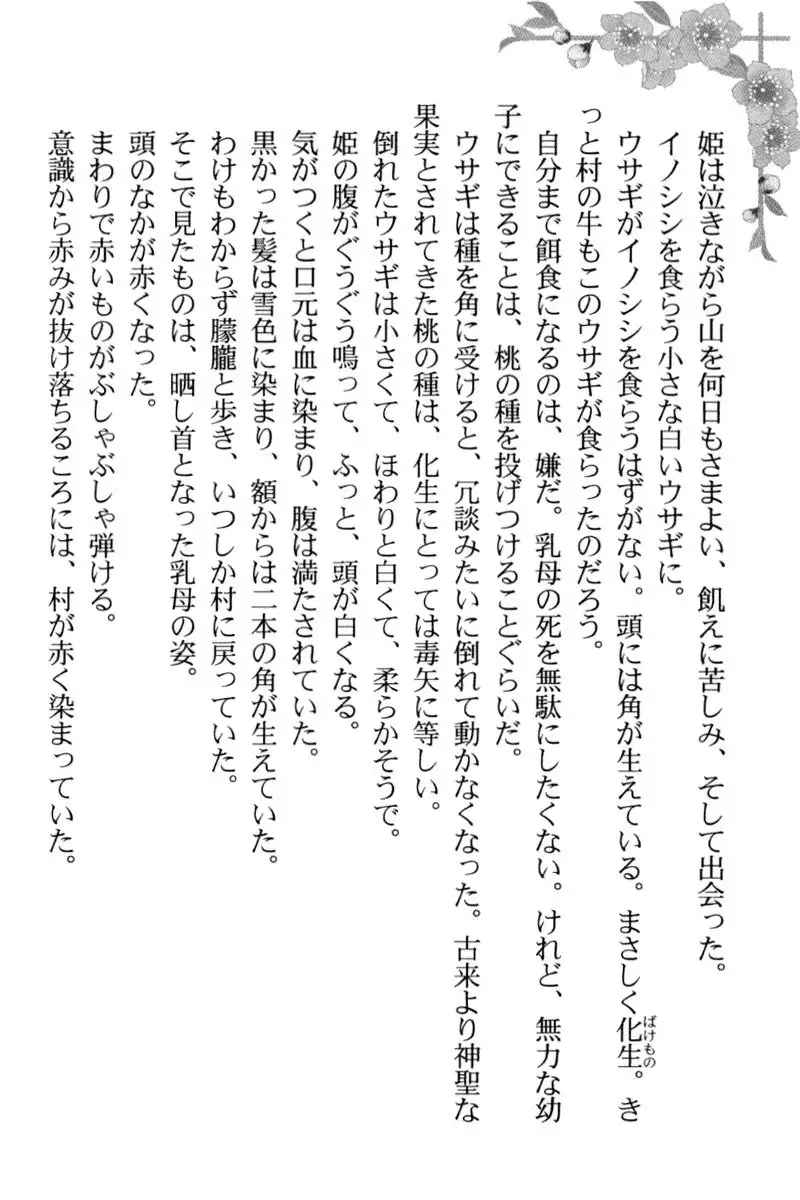 姫は泣きながら山を何日もさまよい、飢えに苦しみ、そして出会った。
イノシシを食らう小さな白いウサギに。
ウサギがイノシシを食らうはずがない。頭には角が生えている。まさしく化生。き
ばけもの
っと村の牛もこのウサギが食らったのだろう。
自分まで餌食になるのは、嫌だ。乳母の死を無駄にしたくない。けれど、無力な幼
子にできることは、桃の種を投げつけることぐらいだ。
ウサギは種を角に受けると、冗談みたいに倒れて動かなくなった。古来より神聖な
果実とされてきた桃の種は、化生にとっては毒矢に等しい。
倒れたウサギは小さくて、ほわりと白くて、柔らかそうで。
姫の腹がぐうぐう鳴って、ふっと、頭が白くなる。
気がつくと口元は血に染まり、腹は満たされていた。
黒かった髪は雪色に染まり、額からは二本の角が生えていた。
わけもわからず朦朧と歩き、いつしか村に戻っていた。
そこで見たものは、晒し首となった乳母の姿。
頭のなかが赤くなった。
まわりで赤いものがぶしゃぶしゃ弾ける。
意識から赤みが抜け落ちるころには、村が赤く染まっていた。